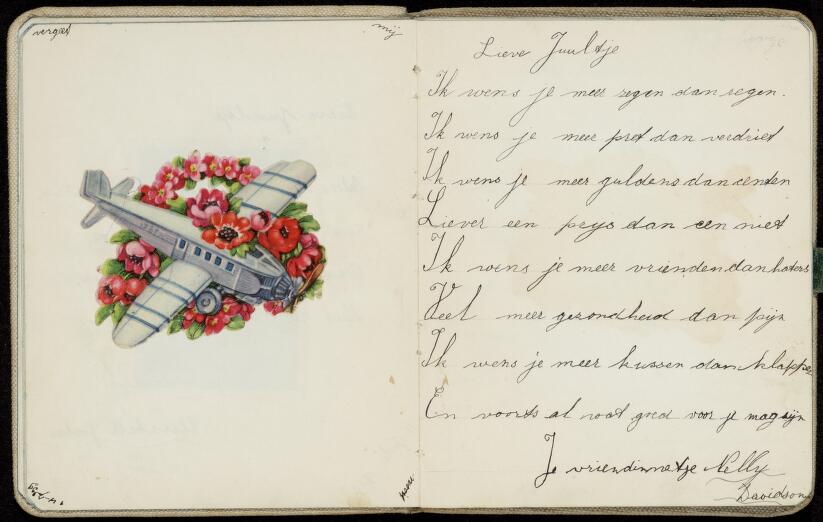 vergeet
mij
niet
Lieve Juultje
Ik wens je meer zegen dan regen.
Ik wens je meer pret dan verdriet
Ik wens je meer guldens dan centen
Liever een prijs dan een niet
Ik wens je meer vrienden dan haters
Veel meer gezondheid dan pijn
Ik wens je meer kussen dan klappen
En voorts al wat goed voor je mag zijn
Je vriendinnetje Nelly
Davidson